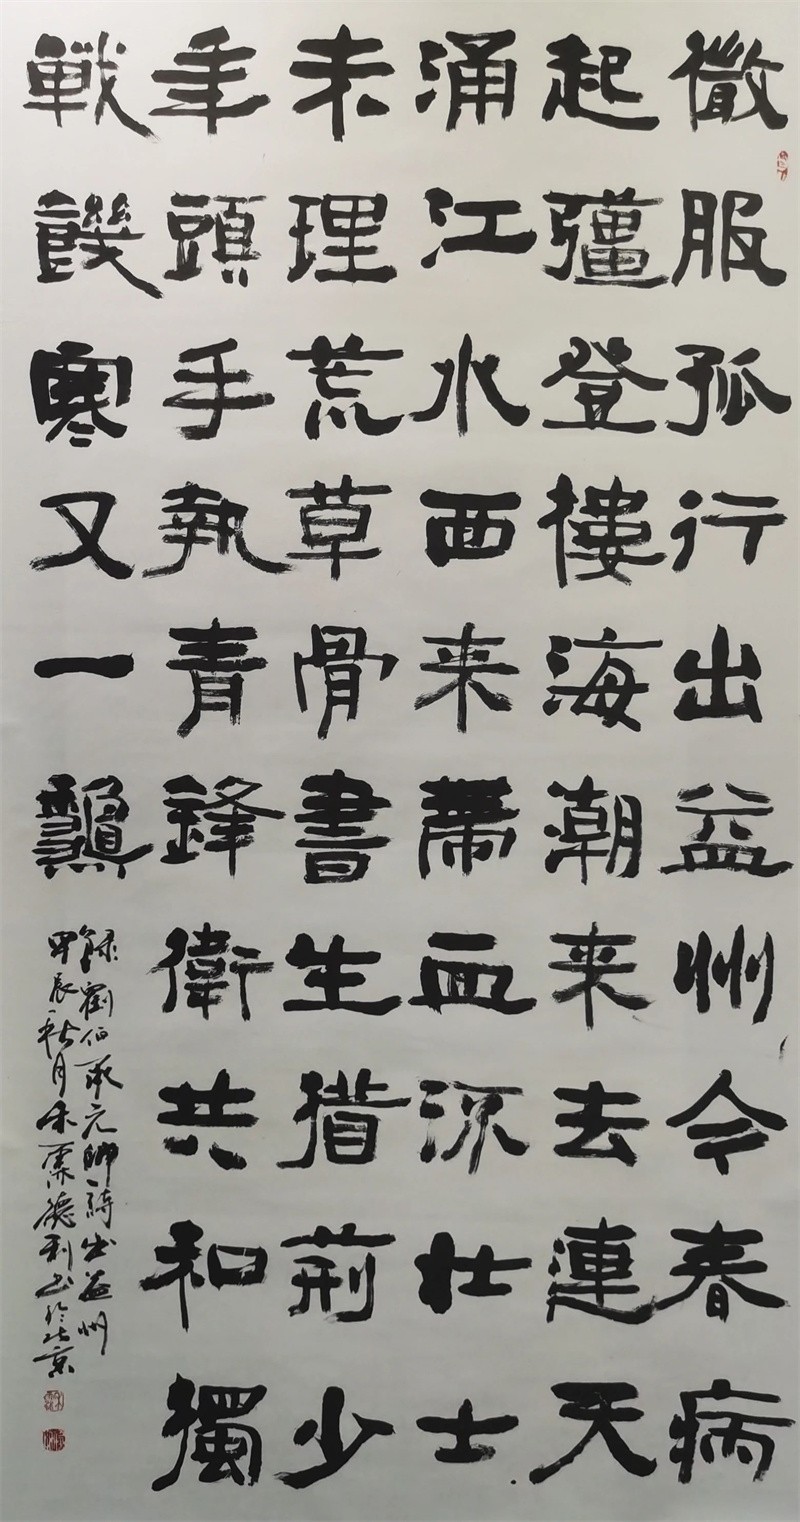 微服孤行出益州今春病
起彊登樓海潮来去連天
涌江水西来帶血流壮士
未理荒草骨書生猶荆少
年頭手執青鋒衛共和獨
戰饑寒又一龝
錄劉伯承元帥詩出益州
甲辰秋月德利書於北京